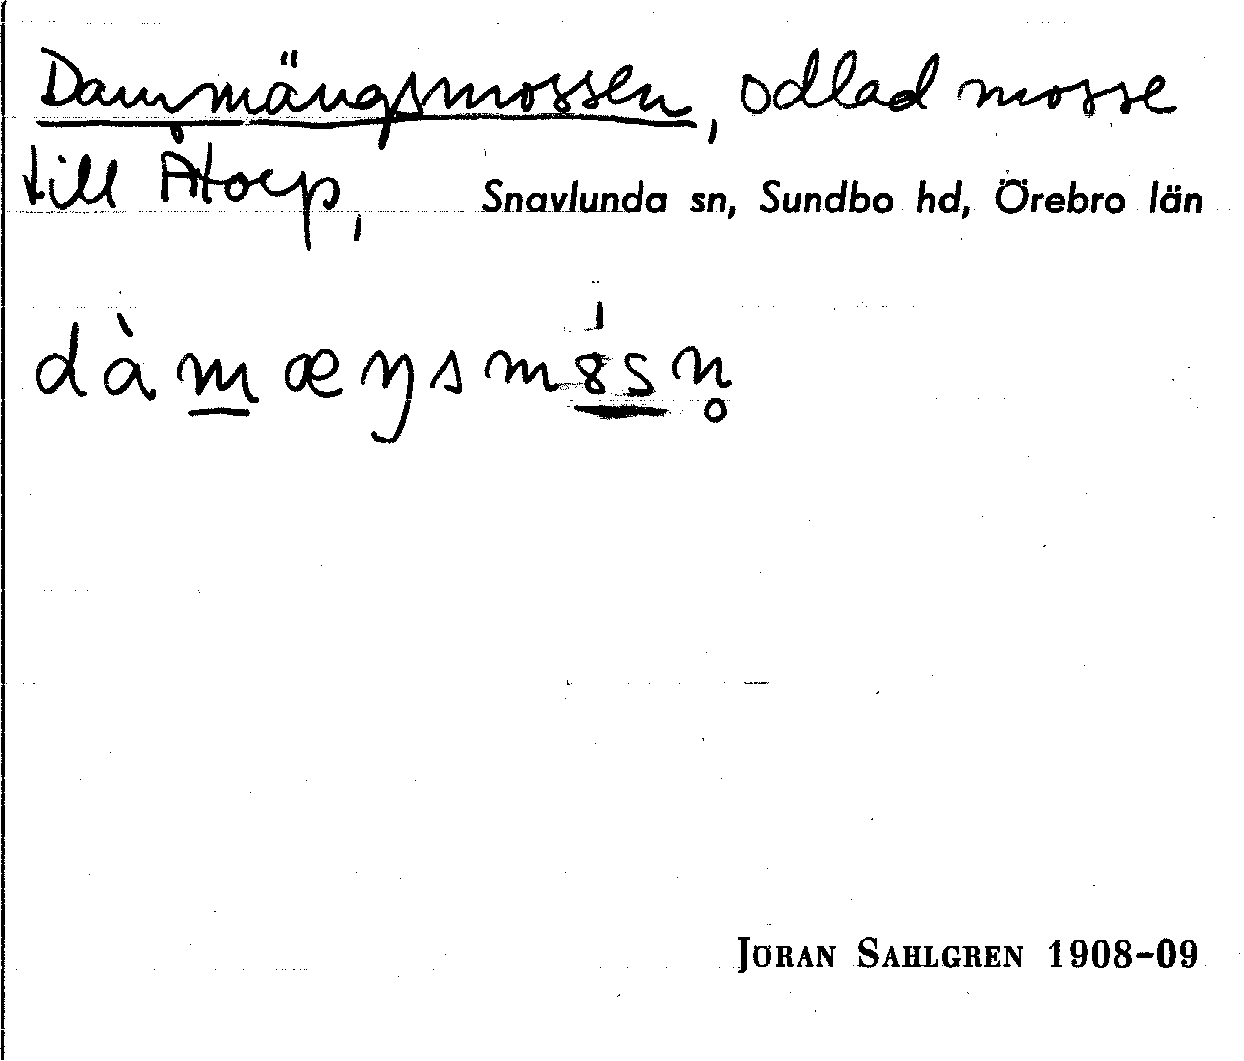 Dammängsmossen, odlad mosse
till Åtorp, Snavlunda sn, Sundbo hd, Örebro län
dàm̲æŋsmȣ́s̲n̥
JÖRAN SAHLGREN 1908-09